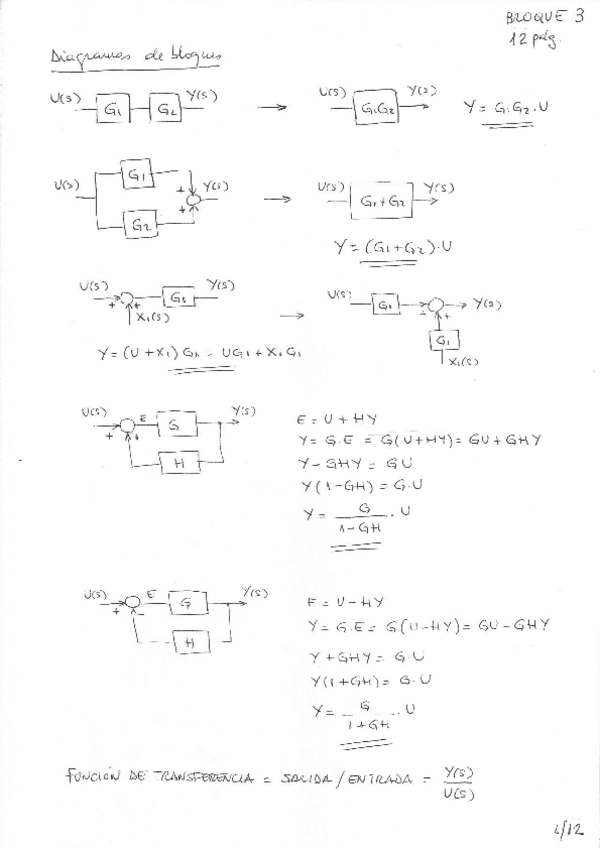 BLOQUE 3
12 pág.
Diagramas de bloques
U(s) G1 G2 Y(s) → U(s) G1G2 Y(s) Y = G1G2·U
U(s) G1 G2 + + Y(s) → U(s) G1+G2 Y(s)
Y = (G1+G2)·U
U(s) + + G1 Y(s) X1(s) → U(s) G1 + + Y(s) G1 X1(s)
Y = (U+X1)G1 = UG1+X1G1
U(s) + + E G Y(s) H
E = U+HY
Y = G·E = G(U+HY) = GU+GHY
Y-GHY = GU
Y(1-GH) = G·U
Y = G/(1-GH) · U
U(s) + - E G Y(s) H
E = U-HY
Y = G·E = G(U-HY) = GU-GHY
Y+GHY = G·U
Y(1+GH) = G·U
Y = G/(1+GH) · U
FUNCIÓN DE TRANSFERENCIA = SALIDA/ENTRADA = Y(s)/U(s)
1/12